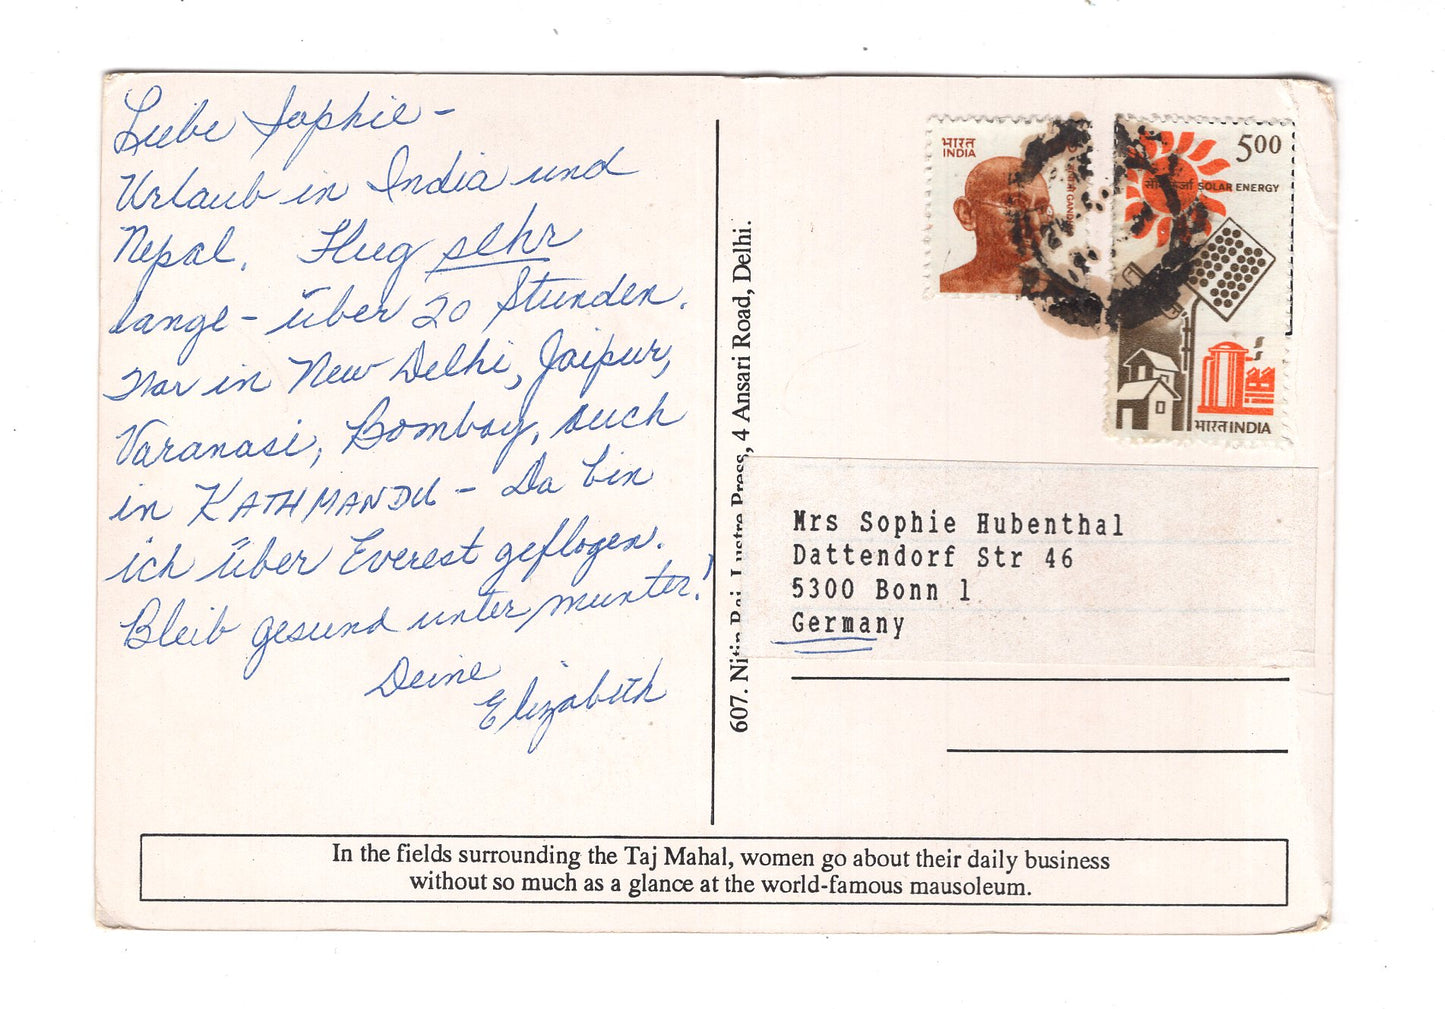 Liebe Sophie -
Urlaub in India und
Nepal. Flug sehr
lange - über 20 Stunden.
War in New Delhi, Jaipur,
Varanasi, Bombay, auch
in KATHMANDU - Da bin
ich über Everest geflogen.
Bleib gesund unter munter!
Deine
Elizabeth
607. Nitin Rai. Lustre Press, 4 Ansari Road, Delhi.
भारत
INDIA
GANDHI
500
सौर ऊर्जा SOLAR ENERGY
भारत INDIA
Mrs Sophie Hubenthal
Dattendorf Str 46
5300 Bonn 1
Germany
In the fields surrounding the Taj Mahal, women go about their daily business
without so much as a glance at the world-famous mausoleum.